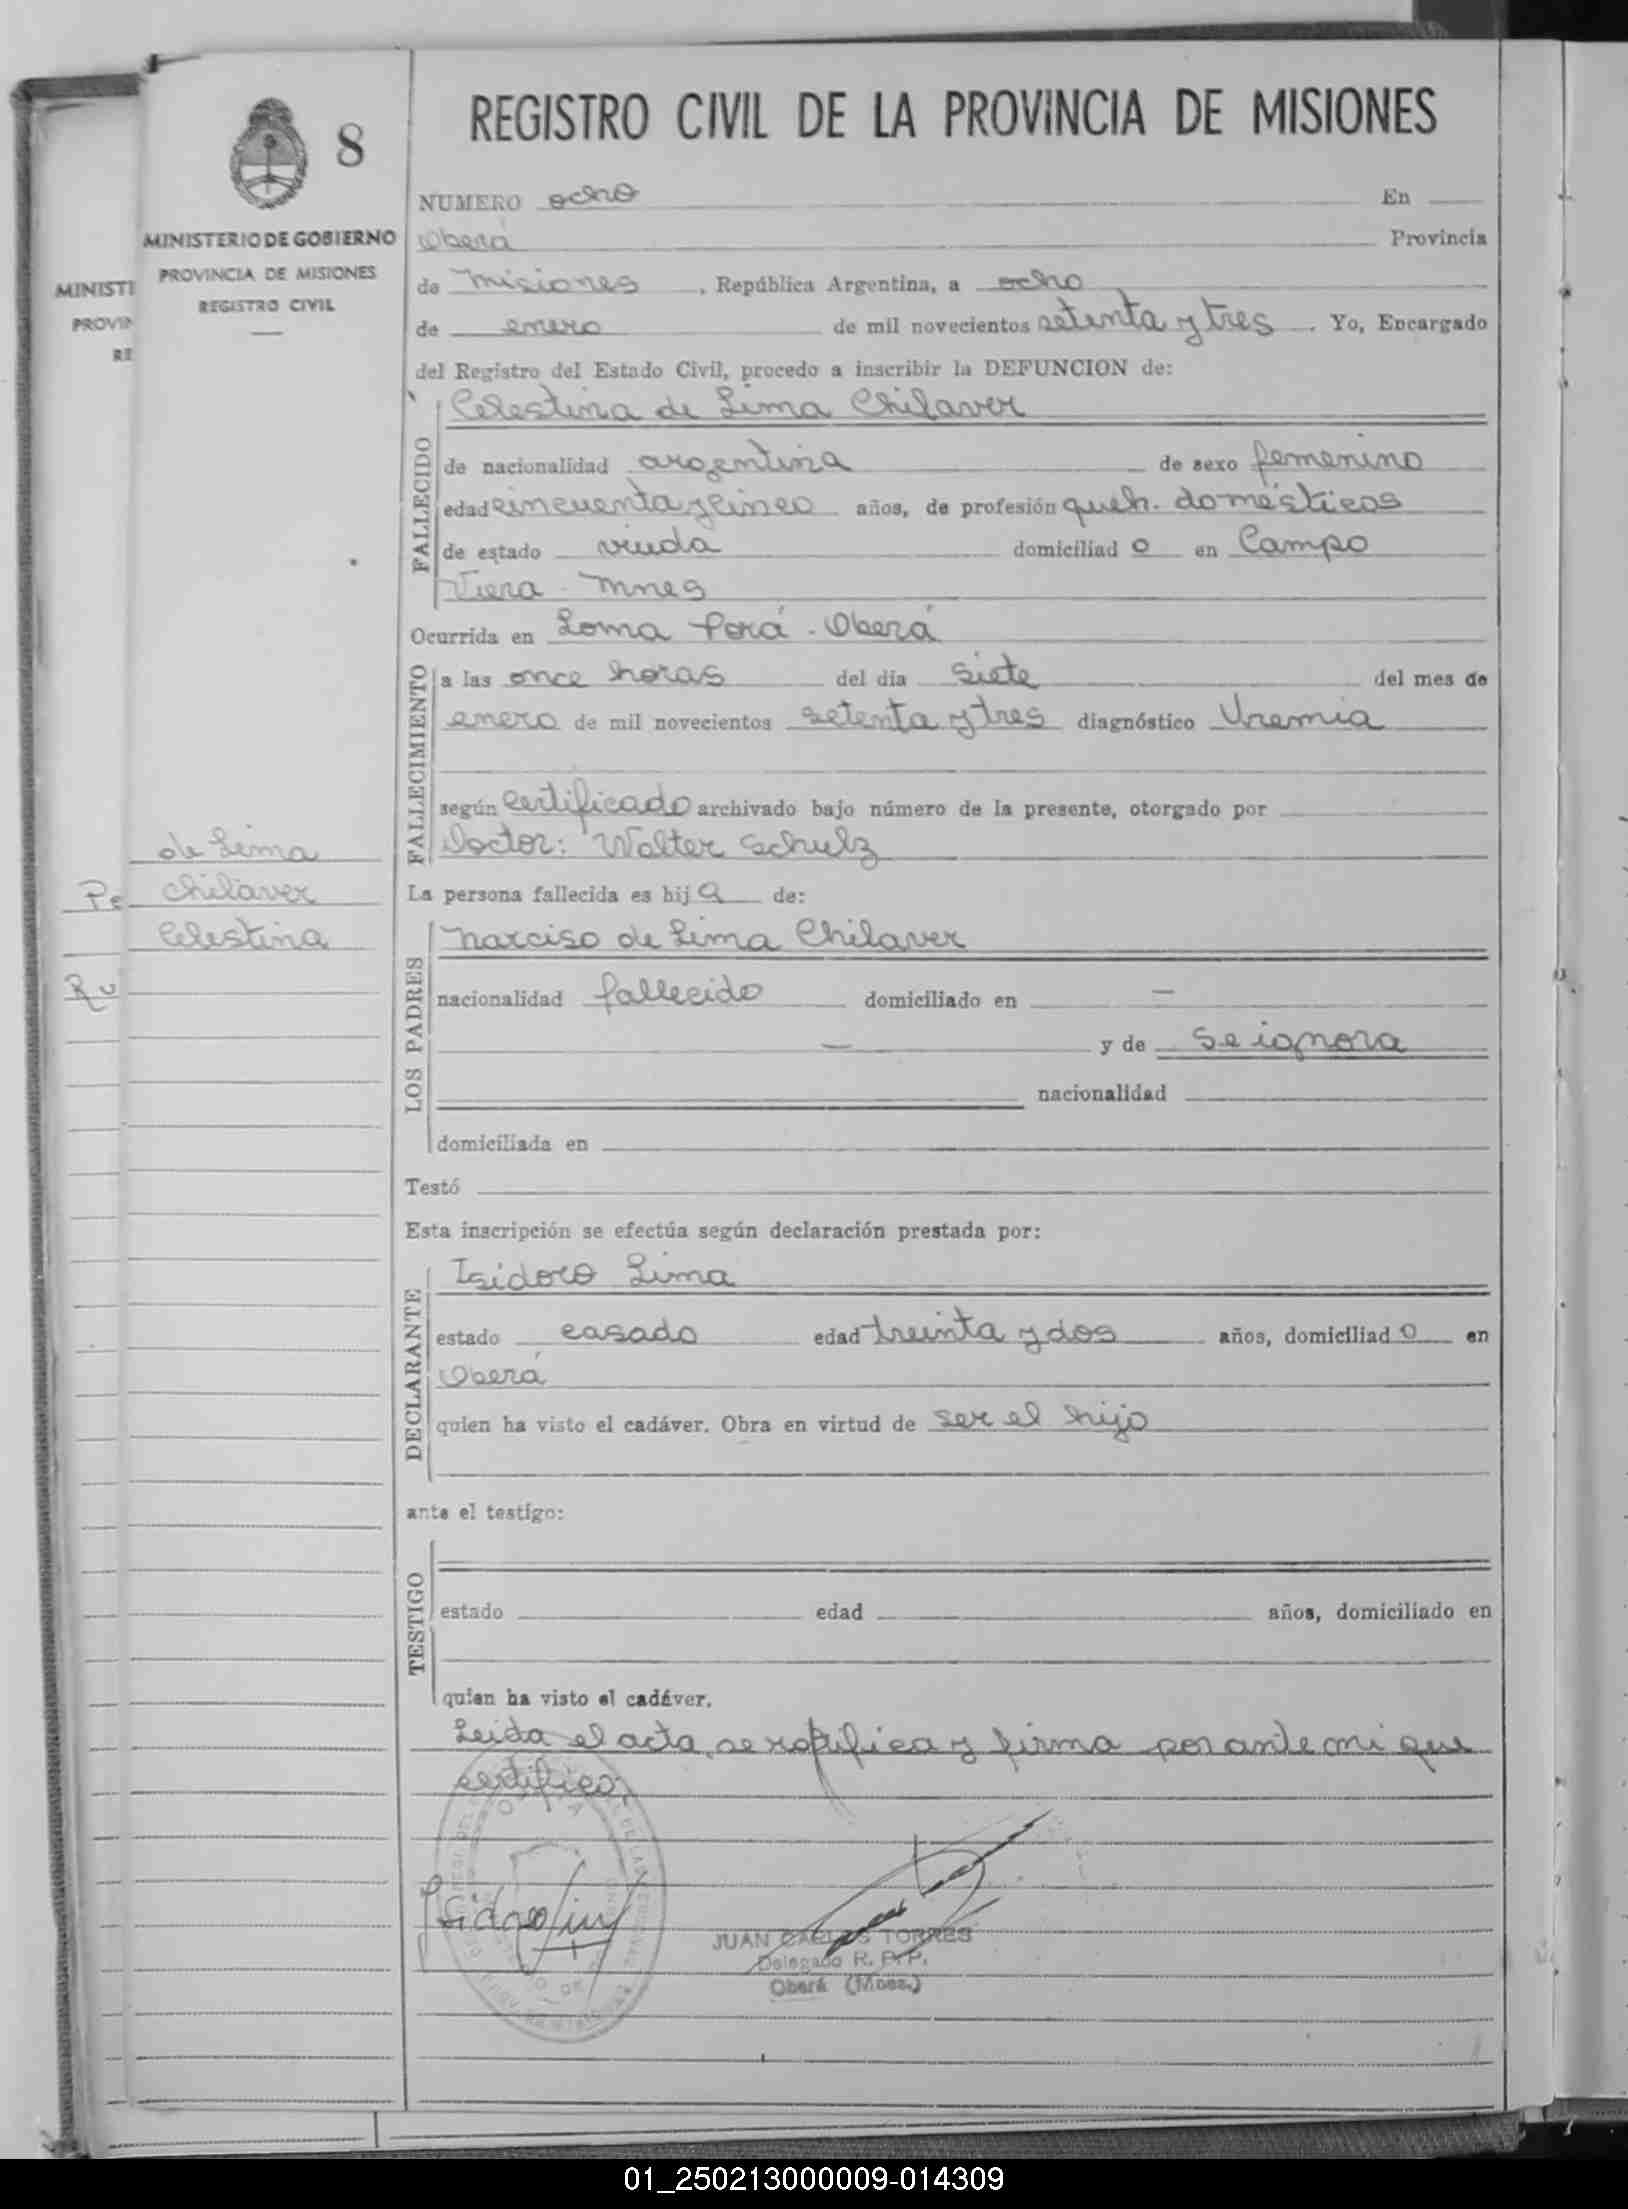 8
MINISTERIO DE GOBIERNO
PROVINCIA DE MISIONES
REGISTRO CIVIL
MINISTE
PROVIN
RE
REGISTRO CIVIL DE LA PROVINCIA DE MISIONES
NUMERO ocho En
Oberá Provincia
de Misiones, República Argentina, a ocho
de enero de mil novecientos setenta y tres. Yo, Encargado
del Registro del Estado Civil, procedo a inscribir la DEFUNCION de:
FALLECIDO
Celestina de Lima Chilaver
de nacionalidad argentina de sexo femenino
edad cincuenta y cinco años, de profesión queh. domésticos
de estado viuda domiciliad o en Campo
Viera - Mnes
Ocurrida en Loma Porá - Oberá
FALLECIMIENTO
a las once horas del día siete del mes de
enero de mil novecientos setenta y tres diagnóstico Uremia
según Certificado archivado bajo número de la presente, otorgado por
Doctor: Walter Schulz
La persona fallecida es hij a de:
LOS PADRES
Narciso de Lima Chilaver
nacionalidad fallecido domiciliado en —
— y de se ignora
nacionalidad
domiciliada en
Testó
Esta inscripción se efectúa según declaración prestada por:
DECLARANTE
Isidoro Lima
estado casado edad treinta y dos años, domiciliad o en
Oberá
quien ha visto el cadáver. Obra en virtud de ser el hijo
ante el testigo:
TESTIGO
estado edad años, domiciliado en
quien ha visto el cadáver.
Leida el acta, se ratifica y firma por ante mi que
certifico.
JUAN CARLOS TORRES
Delegado R. P. P.
Oberá (Mnes.)
de Lima
Chilaver
Celestina
Pe
Ru
01_250213000009-014309